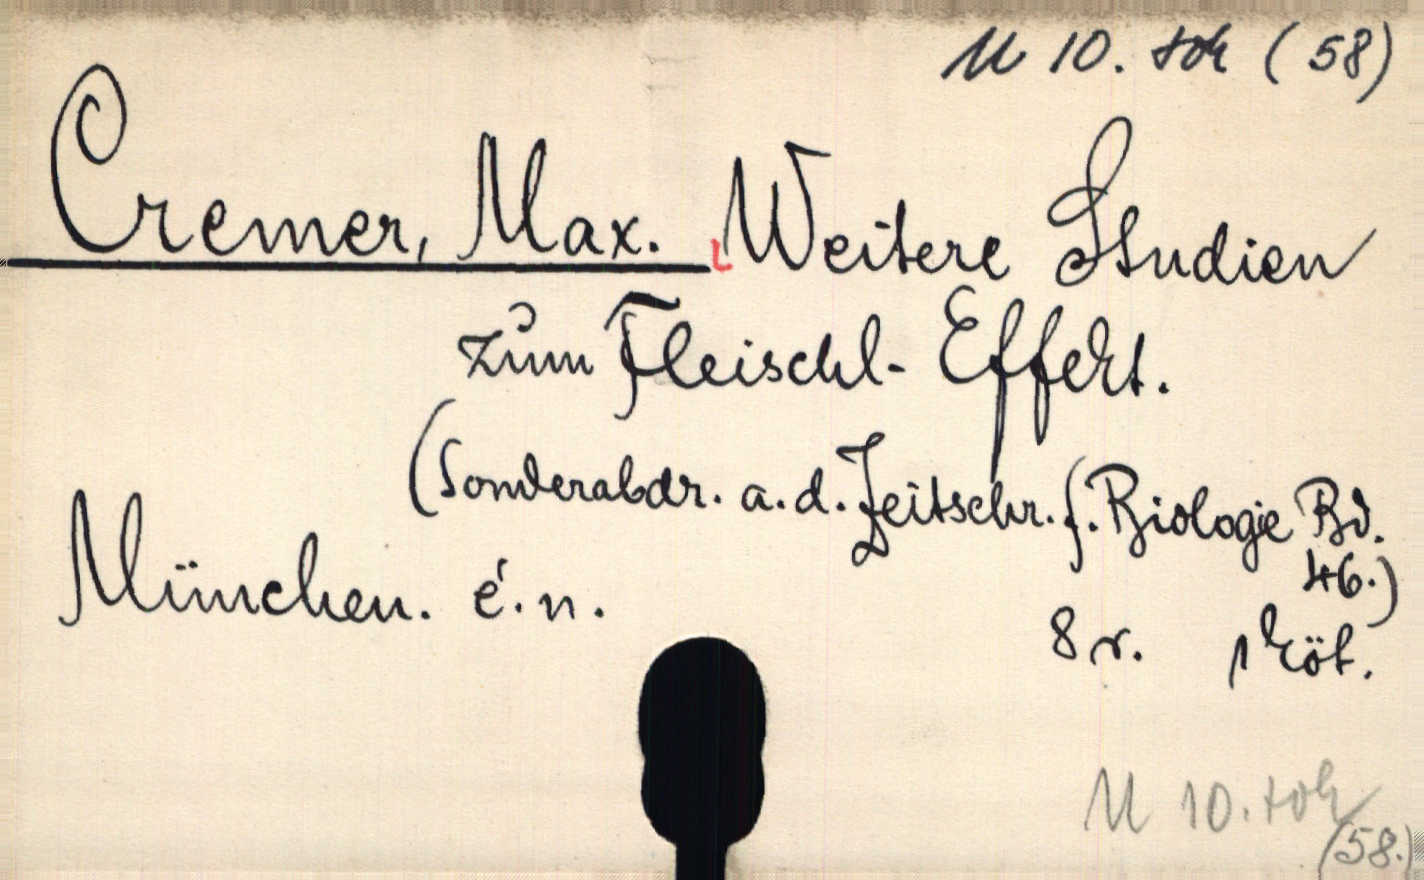 M 10. toh (58)
Cremer, Max. Weitere Studien
zum Fleischl-Effekt.
(Sonderabdr. a. d. Zeitschr. f. Biologie Bd.
46.)
München. é. n.
8 r. 1 köt.
M 10. toh
(58.)